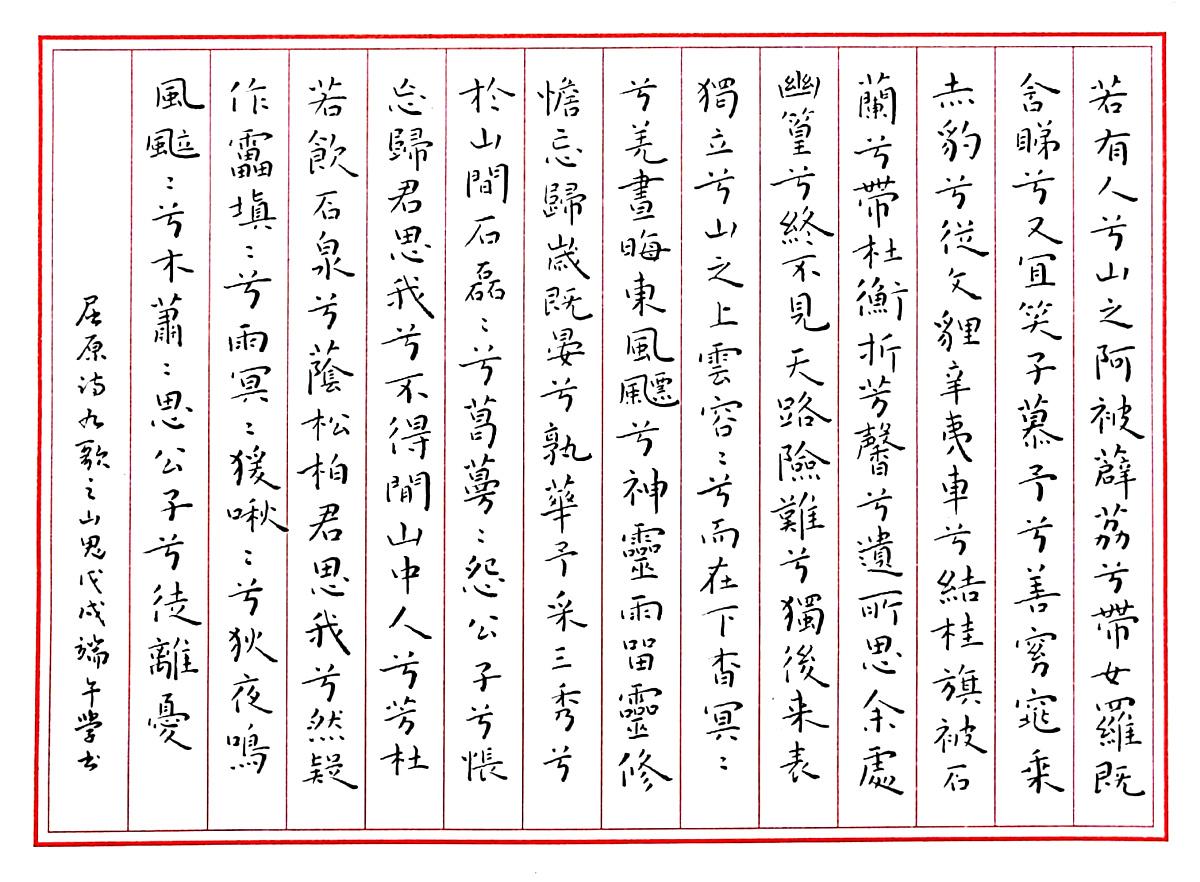 若有人兮山之阿被薜荔兮帶女羅既
含睇兮又宜笑子慕予兮善窈窕乘
赤豹兮從文貍辛夷車兮結桂旗被石
蘭兮帶杜衡折芳馨兮遺所思余處
幽篁兮終不見天路險難兮獨後来表
獨立兮山之上雲容〻兮而在下杳冥〻
兮羌晝晦東風飄兮神靈雨留靈修
憺忘歸歲既晏兮孰華予采三秀兮
於山間石磊〻兮葛蔓〻怨公子兮悵
忘歸君思我兮不得閒山中人兮芳杜
若飲石泉兮蔭松柏君思我兮然疑
作靁填〻兮雨冥〻猨啾〻兮狖夜鳴
風颯〻兮木蕭〻思公子兮徒離憂
屈原诗九歌之山鬼戊戌端午學书